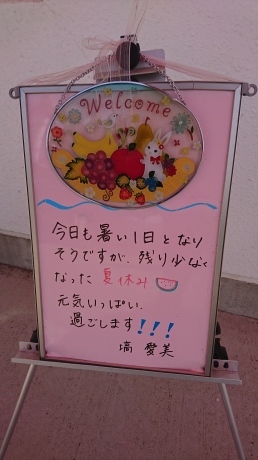 Welcome
今日も暑い1日となり
そうですが、残り少なく
なった 夏休み
元気いっぱい、
過ごします!!!
塙 愛美